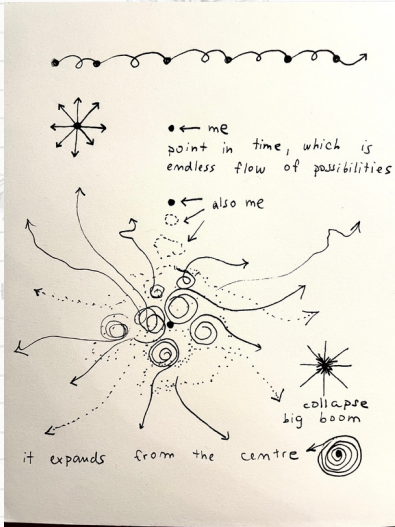 me
point in time, which is
endless flow of possibilities
also me
collapse
big boom
it expands from the centre